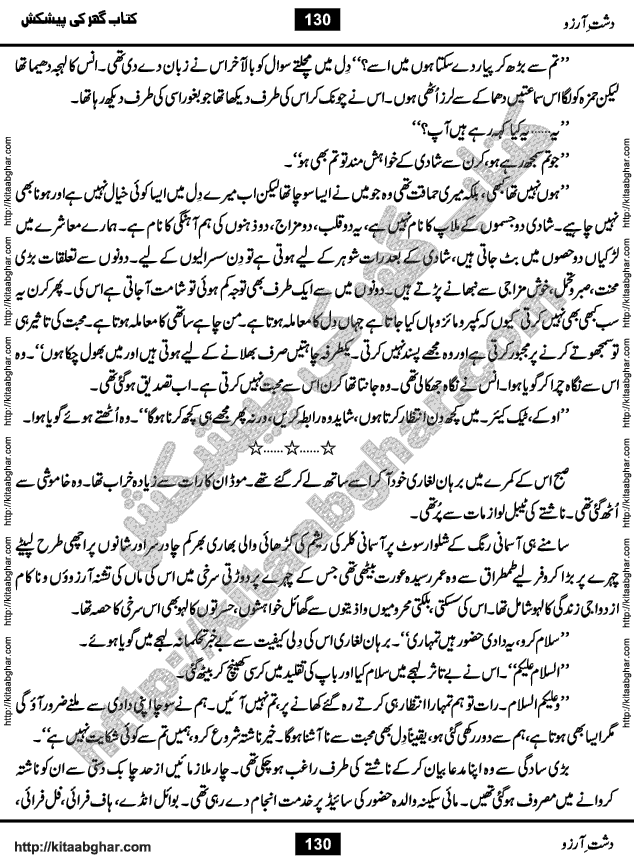 کتاب گھر کی پیشکش 130 دشتِ آرزو
’’تم سے بڑھ کر پیار دے سکتا ہوں میں اسے؟‘‘ دِل میں مچلتے سوال کو بالآخر اس نے زبان دے دی تھی۔ انس کا لہجہ دھیما تھا
لیکن حمزہ کو لگا اس سماعتیں دھماکے سے لرز اُٹھی ہوں۔ اس نے چونک کر اس کی طرف دیکھا تھا جو بغور اسی کی طرف دیکھ رہا تھا۔
’’یہ...... یہ کیا کہہ رہے ہیں آپ؟‘‘
’’جو تم سمجھ رہے ہو، کرن سے شادی کے خواہش مند تو تم بھی ہو‘‘۔
’’ہوں نہیں تھا کبھی، بلکہ میری حماقت تھی وہ جو میں نے ایسا سوچا تھا لیکن اب میرے دِل میں ایسا کوئی خیال نہیں ہے اور ہونا بھی
نہیں چاہیے۔ شادی دو جسموں کے ملاپ کا نام نہیں ہے، یہ دو قلب، دو مزاج، دو ذہنوں کی ہم آہنگی کا نام ہے۔ ہمارے معاشرے میں
لڑکیاں دو حصوں میں بٹ جاتی ہیں، شادی کے بعد رات شوہر کے لیے ہوتی ہے تو دن سسرالیوں کے لیے۔ دونوں سے تعلقات بڑی
محنت، صبر و تحمل، خوش مزاجی سے نبھانے پڑتے ہیں۔ دونوں میں سے ایک طرف بھی توجہ کم ہوئی تو شامت آ جاتی ہے اس کی۔ پھر کرن یہ
سب بھی بھی نہیں کرتی کیوں کہ کمپرومائز وہاں کیا جاتا ہے جہاں دِل کا معاملہ ہوتا ہے۔ من چاہے ساتھی کا معاملہ ہوتا ہے۔ محبت کی تاثیر ہی
تو سمجھوتے کرنے پر مجبور کرتی ہے اور وہ مجھے پسند نہیں کرتی۔ یکطرفہ چاہتیں صرف بھلانے کے لیے ہوتی ہیں اور میں بھول چکا ہوں‘‘۔ وہ
اس سے نگاہ چرا کر گویا ہوا۔ انس نے نگاہ جھکا لی تھی۔ وہ جانتا تھا کرن اس سے محبت نہیں کرتی ہے۔ اب تصدیق ہو گئی تھی۔
’’اوکے، ٹیک کیئر۔ میں کچھ دن انتظار کرتا ہوں، شاید وہ رابطہ کریں، ورنہ پھر مجھے ہی کچھ کرنا ہوگا‘‘۔ وہ اُٹھتے ہوئے گویا ہوا۔
☆......☆......☆
صبح اس کے کمرے میں برہان لغاری خود آ کر اسے ساتھ لے کر گئے تھے۔ موڈ ان کا رات سے زیادہ خراب تھا۔ وہ خاموشی سے
اُٹھ گئی تھی۔ ناشتے کی ٹیبل لوازمات سے پُر تھی۔
سامنے ہی آسمانی رنگ کے شلوار سوٹ پر آسمانی کلر کی ریشم کی کڑھائی والی بھاری بھرکم چادر سر اور شانوں پر اچھی طرح لپیٹے
چہرے پر بڑا کروفر لیے طمطراق سے وہ عمر رسیدہ عورت بیٹھی تھی جس کے چہرے پر دوڑتی سرخی میں اس کی ماں کی تشنہ آرزوؤں و ناکام
ازدواجی زندگی کا لہو شامل تھا۔ اس کی سسکتی، بلکتی محرومیوں و اذیتوں سے گھائل خواہشوں، حسرتوں کا لہو بھی اس سرخی کا حصہ تھا۔
’’سلام کرو، یہ دادی حضور ہیں تمہاری‘‘۔ برہان لغاری اس کی دِلی کیفیت سے بے خبر تحکمانہ لہجے میں گویا ہوئے۔
’’السلام علیکم‘‘۔ اس نے بے تاثر لہجے میں سلام کیا اور باپ کی تقلید میں کرسی کھینچ کر بیٹھ گئی۔
’’وعلیکم السلام۔ رات تو ہم تمہارا انتظار ہی کرتے رہ گئے کھانے پر، تم نہیں آئیں۔ ہم نے سوچا اپنی دادی سے ملنے ضرور آؤ گی
مگر ایسا بھی ہوتا ہے، ہم سے دور رکھی گئی ہو، یقیناً دِل بھی محبت سے نا آشنا ہوگا۔ خیر ناشتہ شروع کرو، ہمیں تم سے کوئی شکایت نہیں ہے‘‘۔
بڑی سادگی سے وہ اپنا مدعا بیان کر کے ناشتے کی طرف راغب ہو چکی تھی۔ چار ملازمائیں از حد چابک دستی سے ان کو ناشتہ
کروانے میں مصروف ہو گئی تھیں۔ مائی سکینہ والدہ حضور کی سائیڈ پر خدمت انجام دے رہی تھی۔ بوائل انڈے، ہاف فرائی، فل فرائی،
http://kitaabghar.com 130 دشتِ آرزو
http://kitaabghar.com
http://kitaabghar.com
http://kitaabghar.com
http://kitaabghar.com
http://kitaabghar.com
http://kitaabghar.com
http://kitaabghar.com
http://kitaabghar.com
http://kitaabghar.com
http://kitaabghar.com
http://kitaabghar.com
http://kitaabghar.com
کتاب گھر کی پیشکش
http://kitaabghar.com